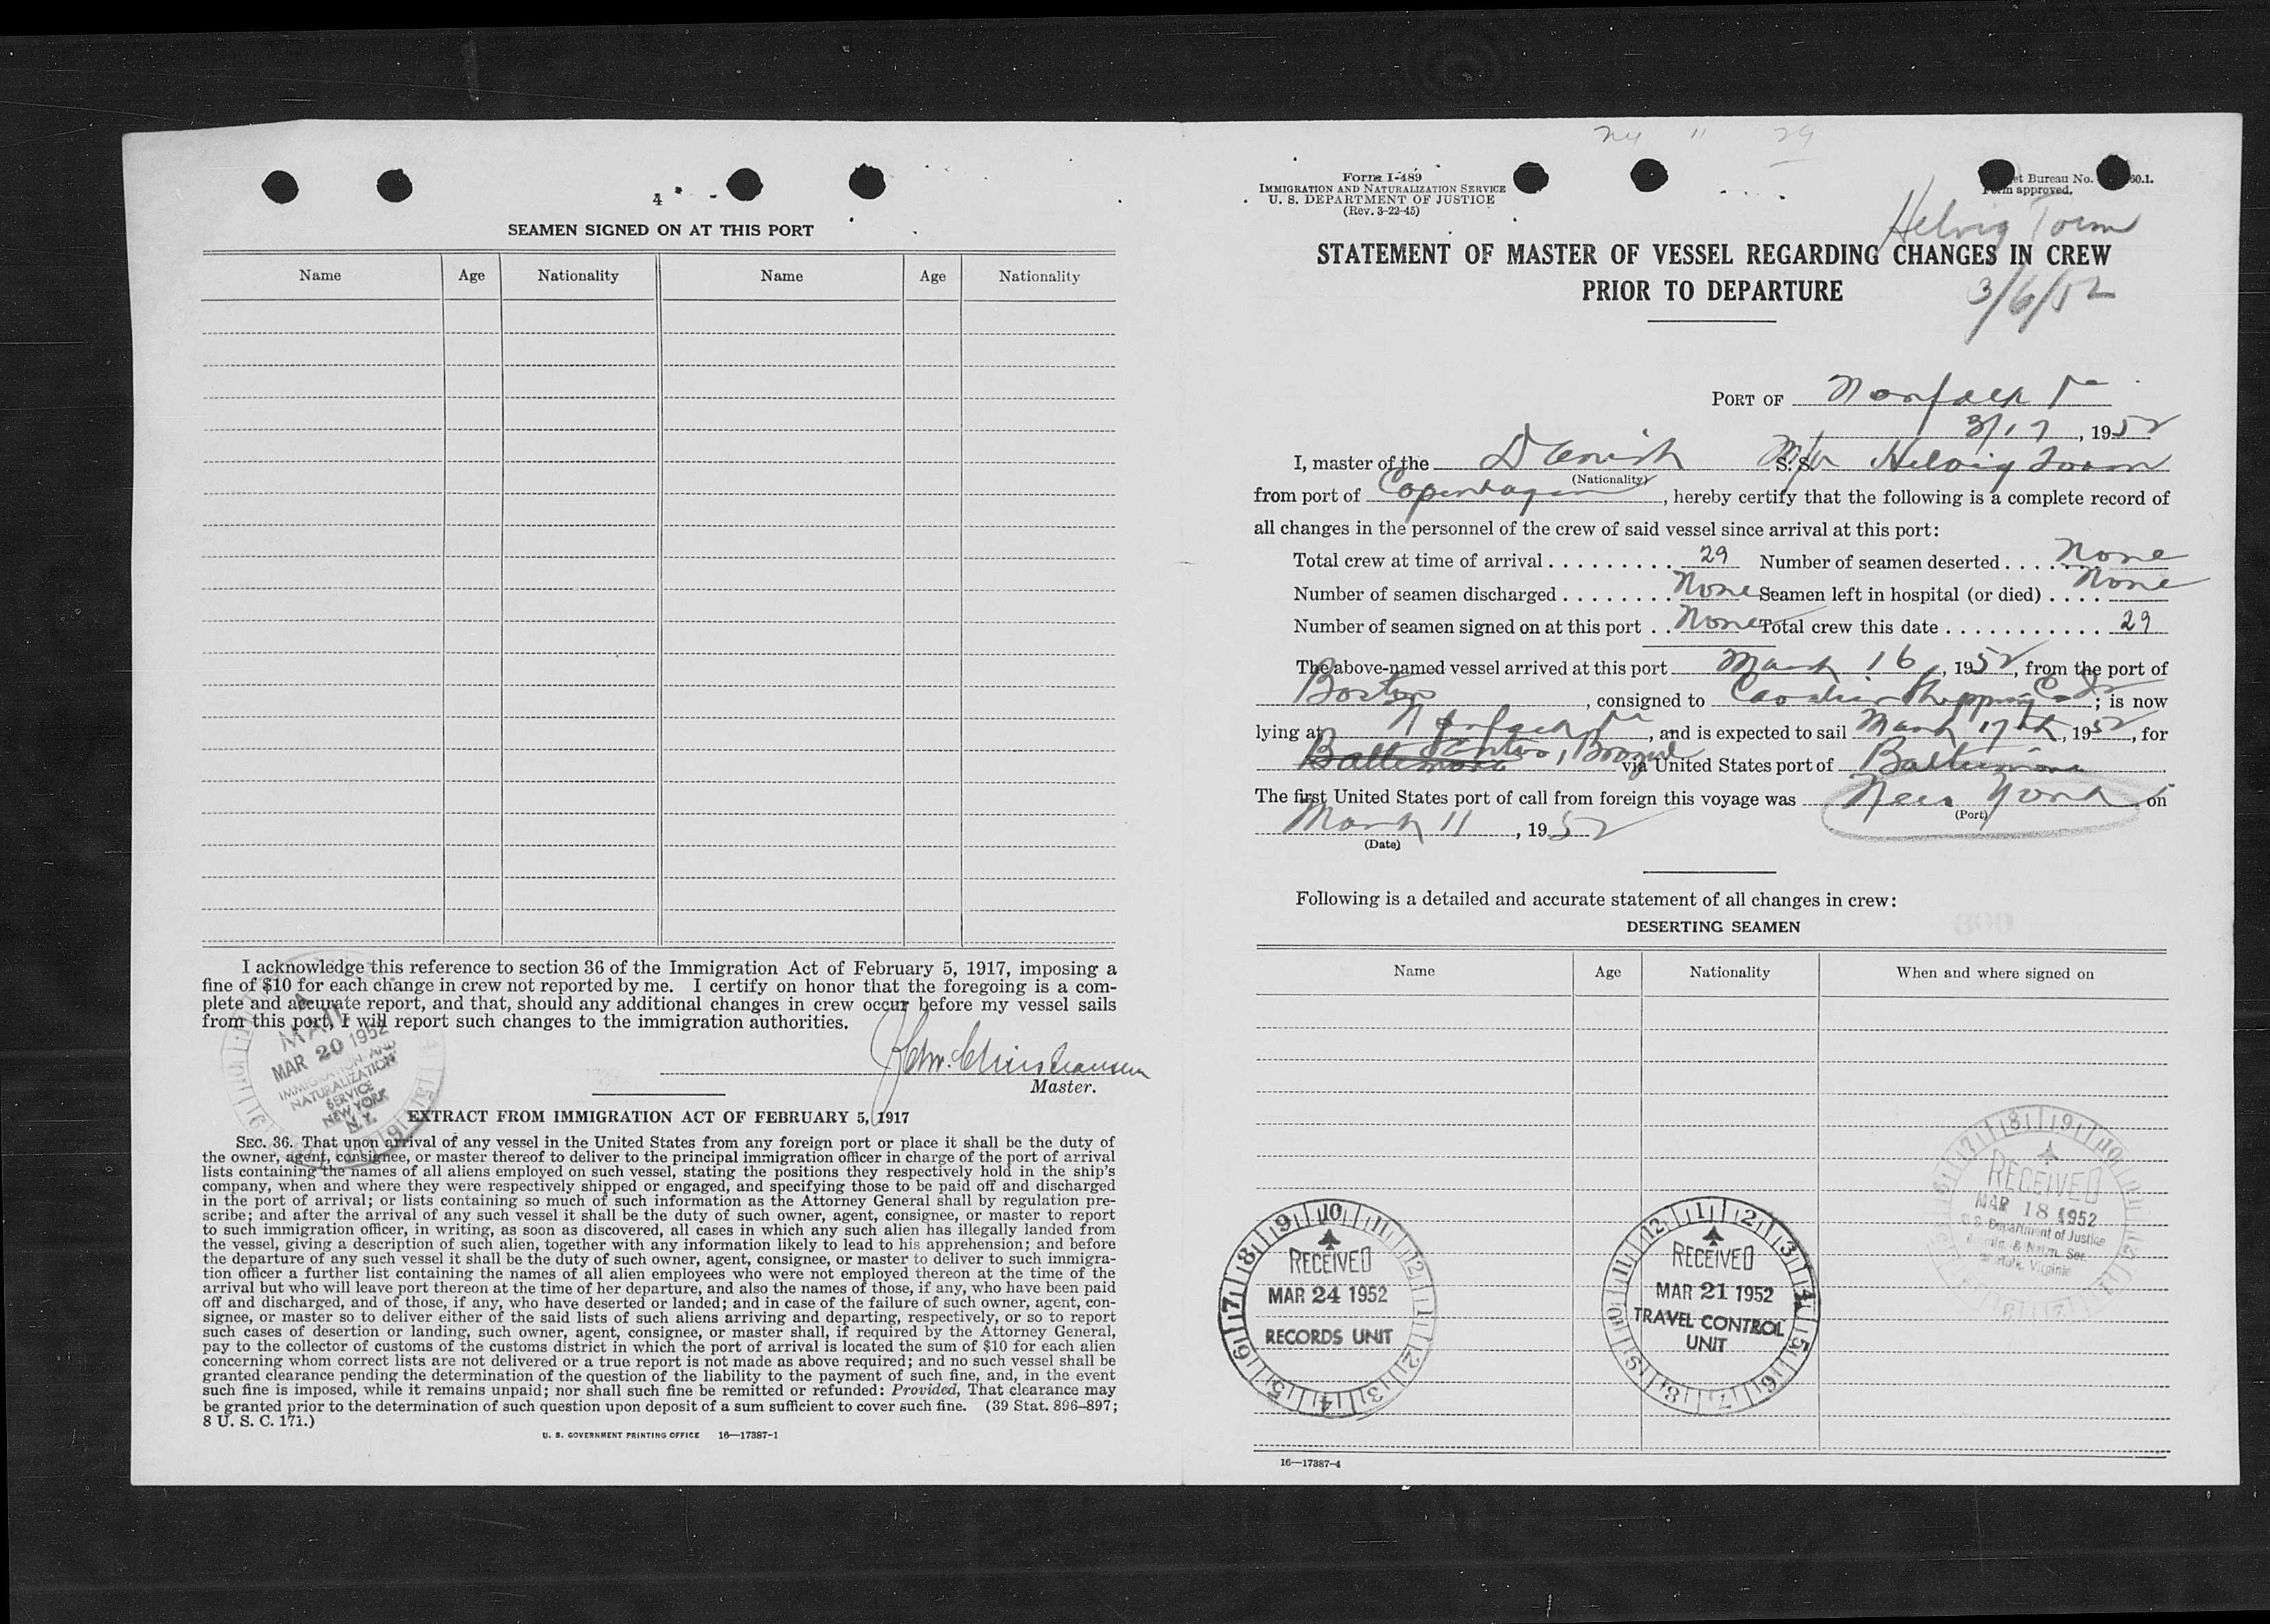 4
SEAMEN SIGNED ON AT THIS PORT
Name Age Nationality Name Age Nationality
I acknowledge this reference to section 36 of the Immigration Act of February 5, 1917, imposing a
fine of $10 for each change in crew not reported by me. I certify on honor that the foregoing is a com-
plete and accurate report, and that, should any additional changes in crew occur before my vessel sails
from this port, I will report such changes to the immigration authorities.
MAIL
MAR 20 1952
IMMIGRATION AND
NATURALIZATION
SERVICE
NEW YORK
N. Y.
Christiansen
Master.
EXTRACT FROM IMMIGRATION ACT OF FEBRUARY 5, 1917
SEC. 36. That upon arrival of any vessel in the United States from any foreign port or place it shall be the duty of
the owner, agent, consignee, or master thereof to deliver to the principal immigration officer in charge of the port of arrival
lists containing the names of all aliens employed on such vessel, stating the positions they respectively hold in the ship's
company, when and where they were respectively shipped or engaged, and specifying those to be paid off and discharged
in the port of arrival; or lists containing so much of such information as the Attorney General shall by regulation pre-
scribe; and after the arrival of any such vessel it shall be the duty of such owner, agent, consignee, or master to report
to such immigration officer, in writing, as soon as discovered, all cases in which any such alien has illegally landed from
the vessel, giving a description of such alien, together with any information likely to lead to his apprehension; and before
the departure of any such vessel it shall be the duty of such owner, agent, consignee, or master to deliver to such immigra-
tion officer a further list containing the names of all alien employees who were not employed thereon at the time of the
arrival but who will leave port thereon at the time of her departure, and also the names of those, if any, who have been paid
off and discharged, and of those, if any, who have deserted or landed; and in case of the failure of such owner, agent, con-
signee, or master so to deliver either of the said lists of such aliens arriving and departing, respectively, or so to report
such cases of desertion or landing, such owner, agent, consignee, or master shall, if required by the Attorney General,
pay to the collector of customs of the customs district in which the port of arrival is located the sum of $10 for each alien
concerning whom correct lists are not delivered or a true report is not made as above required; and no such vessel shall be
granted clearance pending the determination of the question of the liability to the payment of such fine, and, in the event
such fine is imposed, while it remains unpaid; nor shall such fine be remitted or refunded: Provided, That clearance may
be granted prior to the determination of such question upon deposit of a sum sufficient to cover such fine. (39 Stat. 896-897;
8 U. S. C. 171.)
U. S. GOVERNMENT PRINTING OFFICE 16—17387-1
NY 11 29
Form I-489
IMMIGRATION AND NATURALIZATION SERVICE
U. S. DEPARTMENT OF JUSTICE
(Rev. 3-22-45)
Bureau No.
approved.
Helvig Torm
STATEMENT OF MASTER OF VESSEL REGARDING CHANGES IN CREW
PRIOR TO DEPARTURE
3/6/52
PORT OF Norfolk Va
3/17, 1952
I, master of the Danish S. S. M/V Helvig Torm
(Nationality)
from port of Copenhagen, hereby certify that the following is a complete record of
all changes in the personnel of the crew of said vessel since arrival at this port:
Total crew at time of arrival . . . . . . . . . 29 Number of seamen deserted . . . . None
Number of seamen discharged . . . . . . . . None Seamen left in hospital (or died) . . . . None
Number of seamen signed on at this port . . None Total crew this date . . . . . . . . . . . 29
The above-named vessel arrived at this port March 16, 1952, from the port of
Boston, consigned to Cavalier Shipping Co; is now
lying at Norfolk Va, and is expected to sail March 17th, 1952, for
Baltimore Santos, Brazil via United States port of Baltimore
The first United States port of call from foreign this voyage was New York on
(Port)
March 11, 1952
(Date)
Following is a detailed and accurate statement of all changes in crew:
DESERTING SEAMEN
Name Age Nationality When and where signed on
RECEIVED
MAR 18 1952
U. S. Department of Justice
Immig. & Natzn. Ser.
Norfolk, Virginia
RECEIVED
MAR 24 1952
RECORDS UNIT
RECEIVED
MAR 21 1952
TRAVEL CONTROL
UNIT
16—17387-4